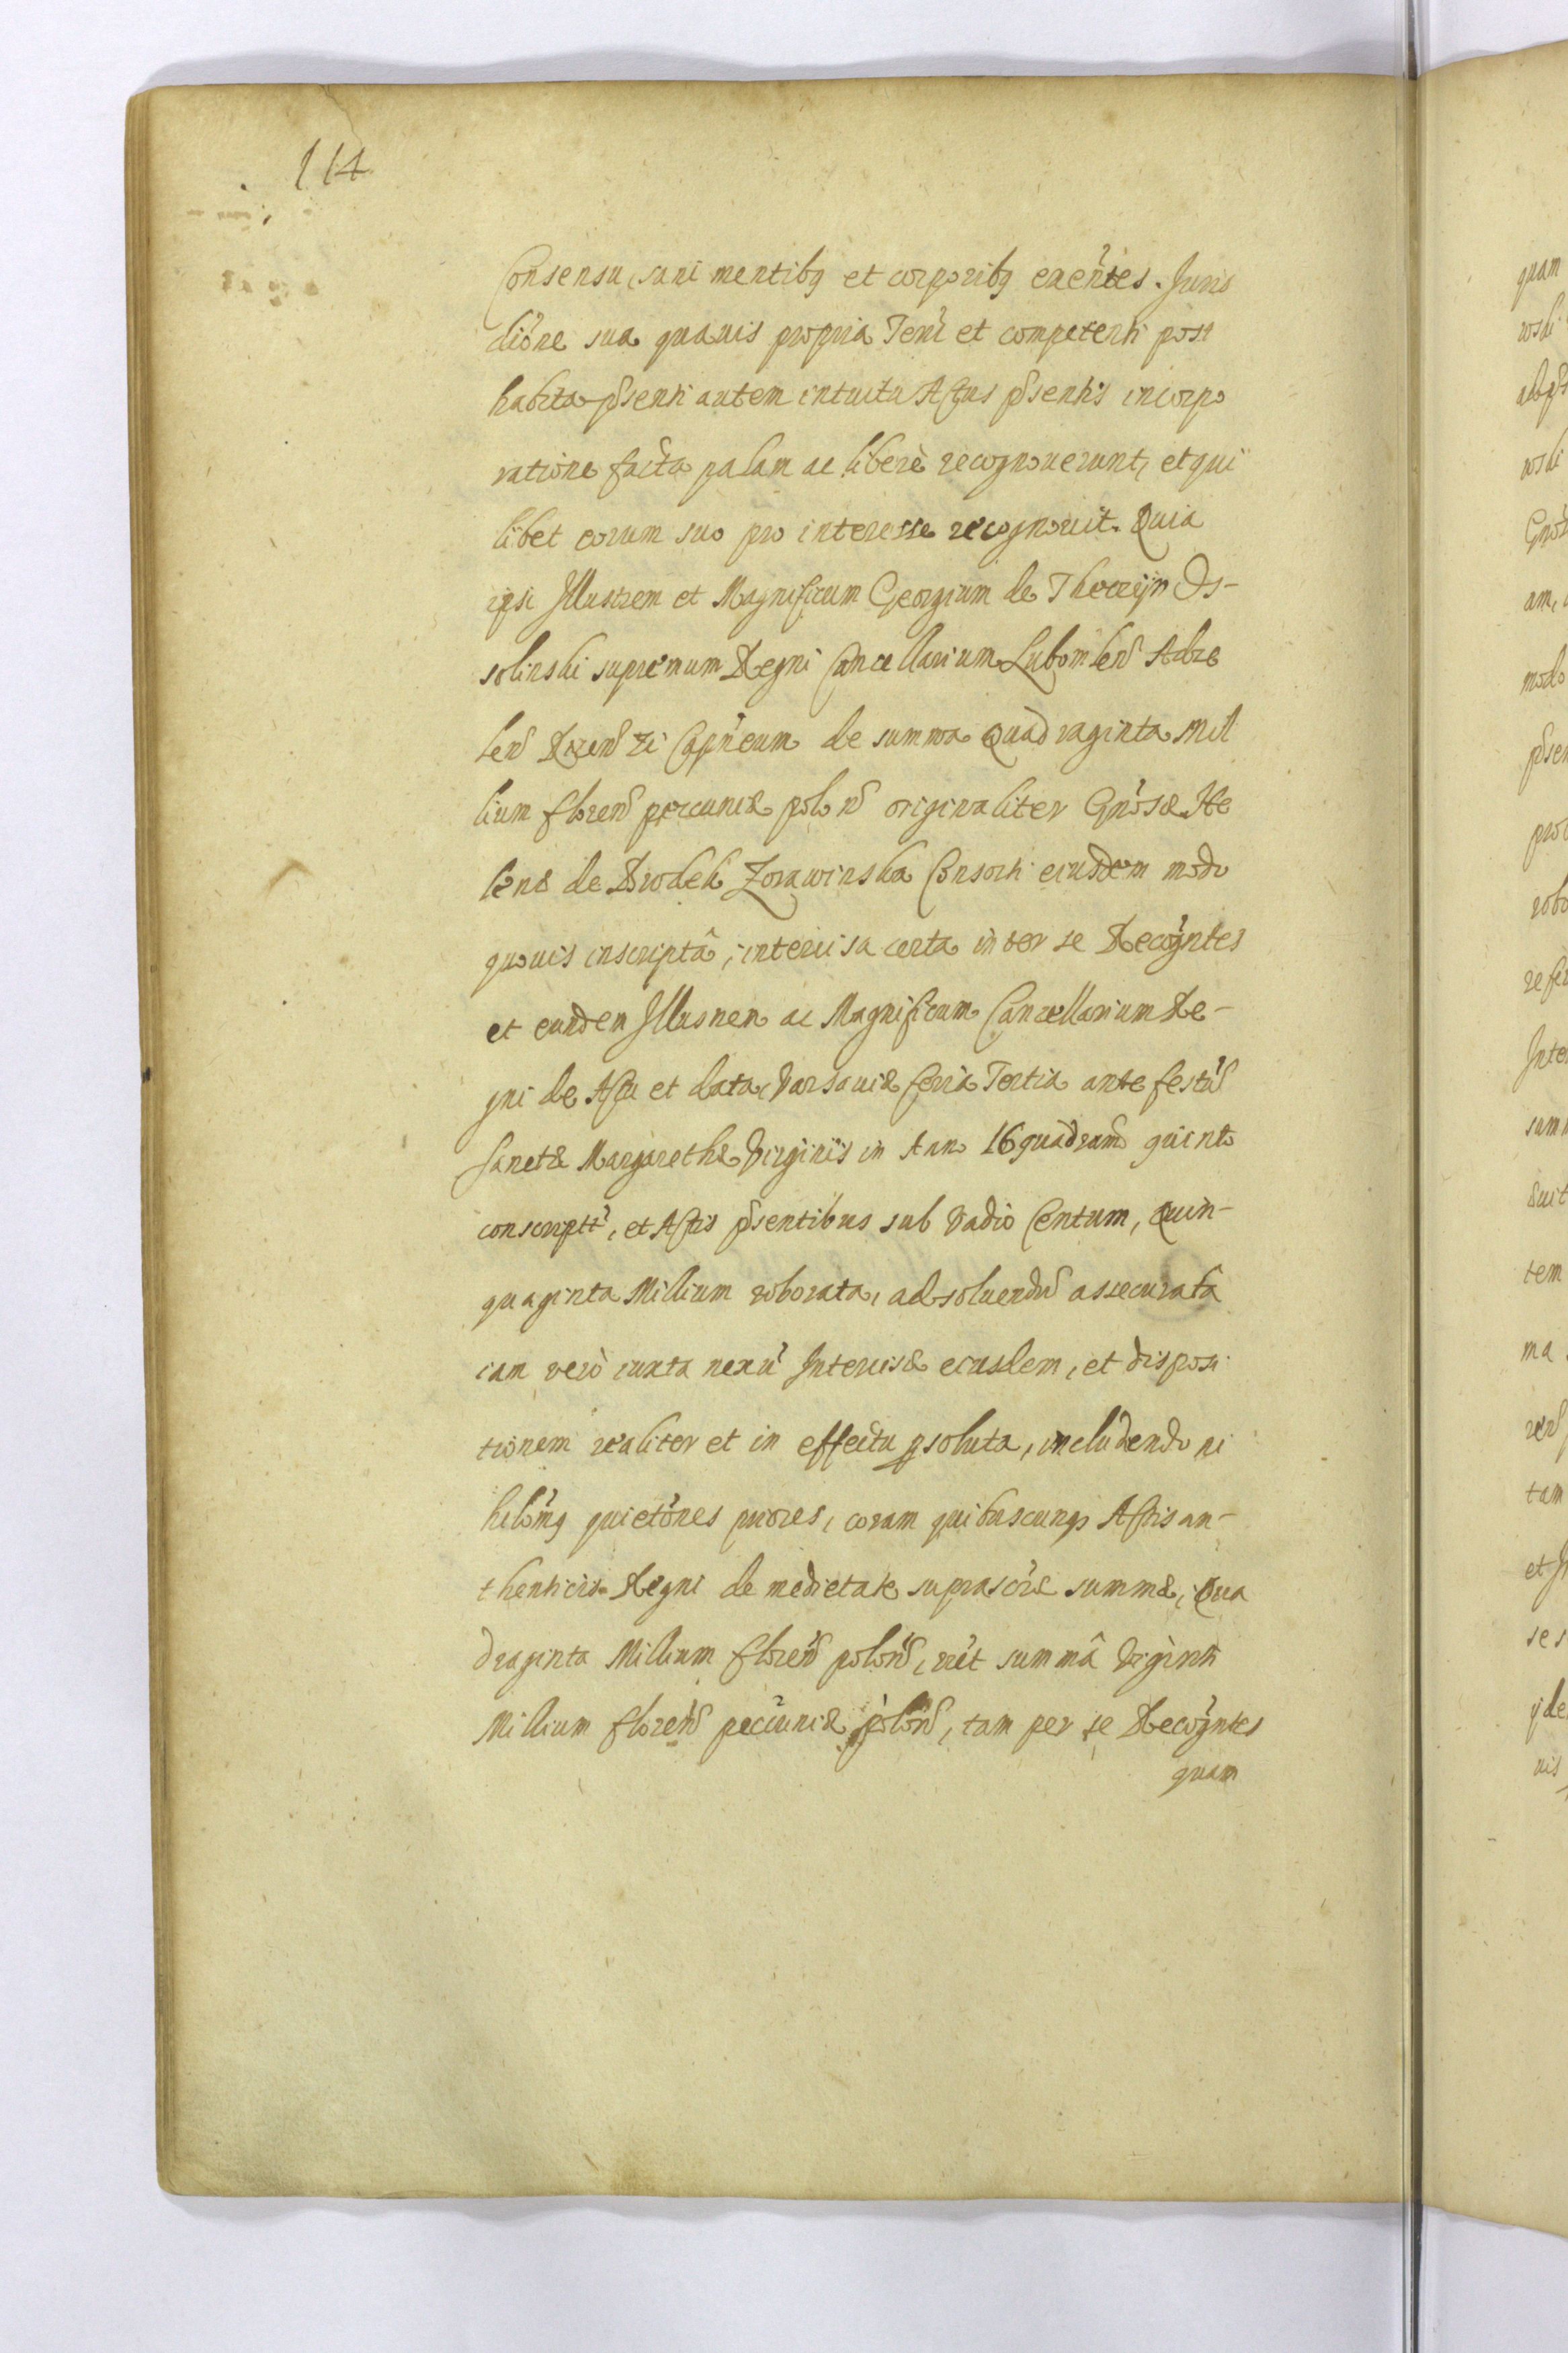 114
Consensu, sani mentibq et corporibq exentes. Juris
dione sua quauis propria Terri et competenti post
habita psenti autem intuitu Actus psentis incorpo
ratione facta palam ac liberè recognouerunt, et qui
libet eorum suo pro interesse recognouit. Quia
ipsi Illustrem et Magnificum Georgium de Theczijn Os-
solinski supremum Regni Cancellarium Lubomlen Adze
len Capneum de summa Quadraginta Mil
lium floren pecuniæ polon originaliter Gnosæ He
lenæ de Brodek Zorawinska Consorti eiusdem modo
quouis inscriptâ, intercisa certa inter se Recogntes
et eundem Illusnem ac Magnificum Cancellarium Re-
gni de Actu et data Varsauiæ feria Tertia ante festu
Sanctæ Margarethæ Virginis in Anno 16 quadram quinto
conscript, et Actis psentibus sub Vadio Centum, Quin-
quaginta Millium roborata, ad soluendu assecuratâ
iam verò iuxta nexu Intercisæ eiusdem, et disposi
tionem realiter et in effectu psoluta, includendo ni
hilomq quietones priores, coram quibuscunqs Actis au-
thenticis Regni de medietate suprascræ summæ, Qua
draginta Millium floren polon, vet summâ Viginti
Millium floren pecuniæ polon, tam per se Recogntes
quam